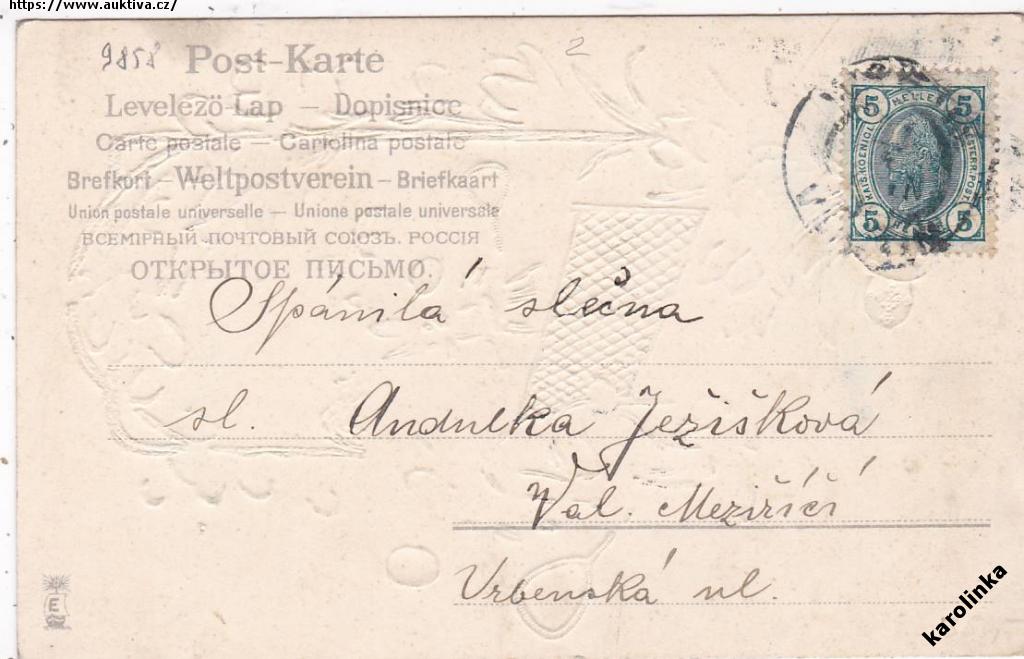 https://www.auktiva.cz/
9858 Post-Karte 2
Levelező-Lap – Dopisnice
Carte postale – Cartolina postale
Brefkort – Weltpostverein – Briefkaart
Union postale universelle – Unione postale universale
ВСЕМІРНЫЙ ПОЧТОВЫЙ СОЮЗЪ. РОССІЯ
ОТКРЫТОЕ ПИСЬМО.
5 HELLER 5
KAIS. KOENIGL. OESTERR. POST
5 5
Spánilá slečna
sl. Andulka Ježíšková
Val. Meziříčí
Vrbenská ul.
E
karolinka